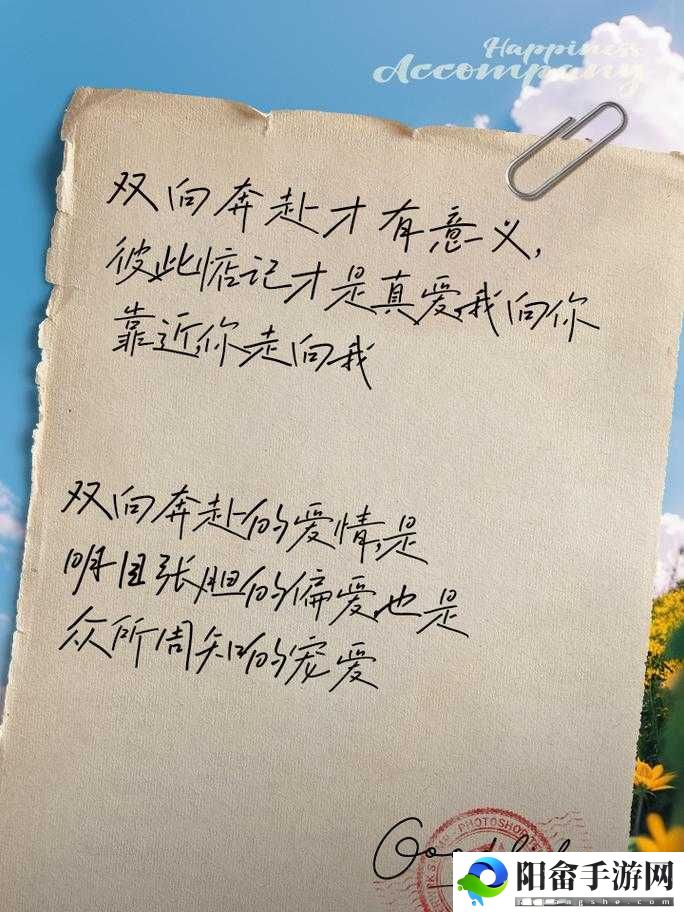 Happiness
Accompany
双向奔赴才有意义,
彼此惦记才是真爱,我向你
靠近,你走向我
双向奔赴的爱情,是
明目张胆的偏爱,也是
众所周知的宠爱
PHOTOSHOP
阳畲手游网